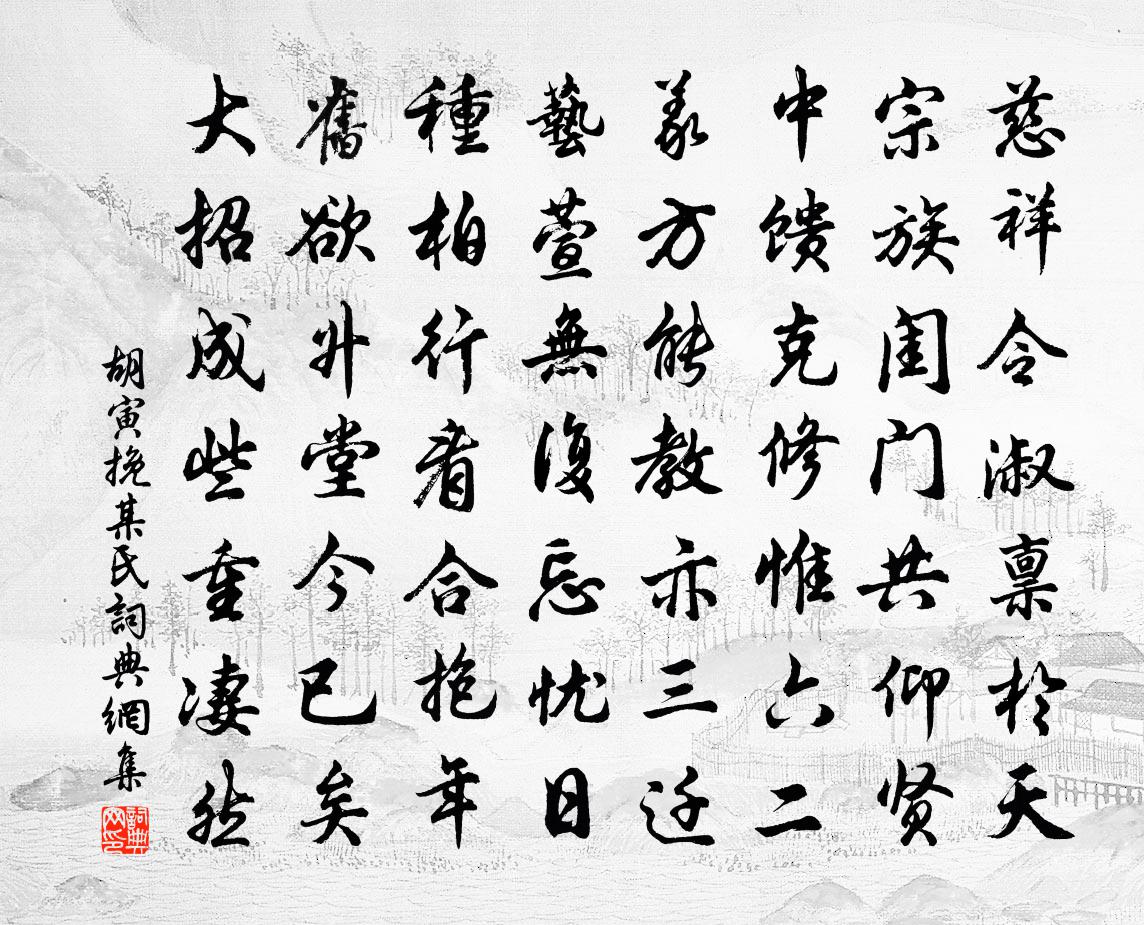 慈祥令淑禀於天
宗族闺门共仰贤
中馈克修惟六二
義方能教亦三迁
藝萱無復忘忧日
種柏行看合抱年
舊欲升堂今已矣
大招成些重凄然
胡寅挽某氏詞典網集
詞典网印